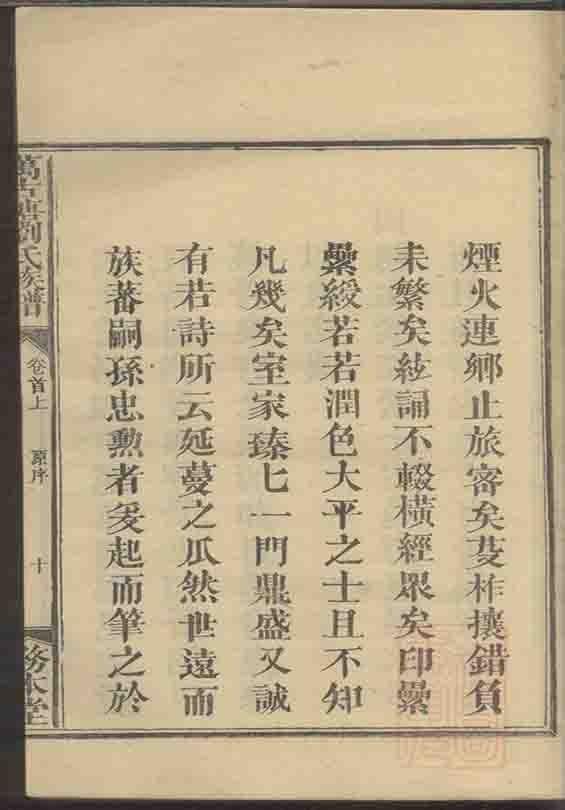 煙火連鄉止旅密矣芟柞攘錯負
耒繁矣絃誦不輟橫經眾矣印纍
纍綬若若潤色大平之士且不知
凡幾矣室家臻七一門鼎盛又誠
有若詩所云延蔓之瓜然世遠而
族蕃嗣孫忠勲者爰起而筆之於
劉氏族譜
卷首上
原序
十
務本堂